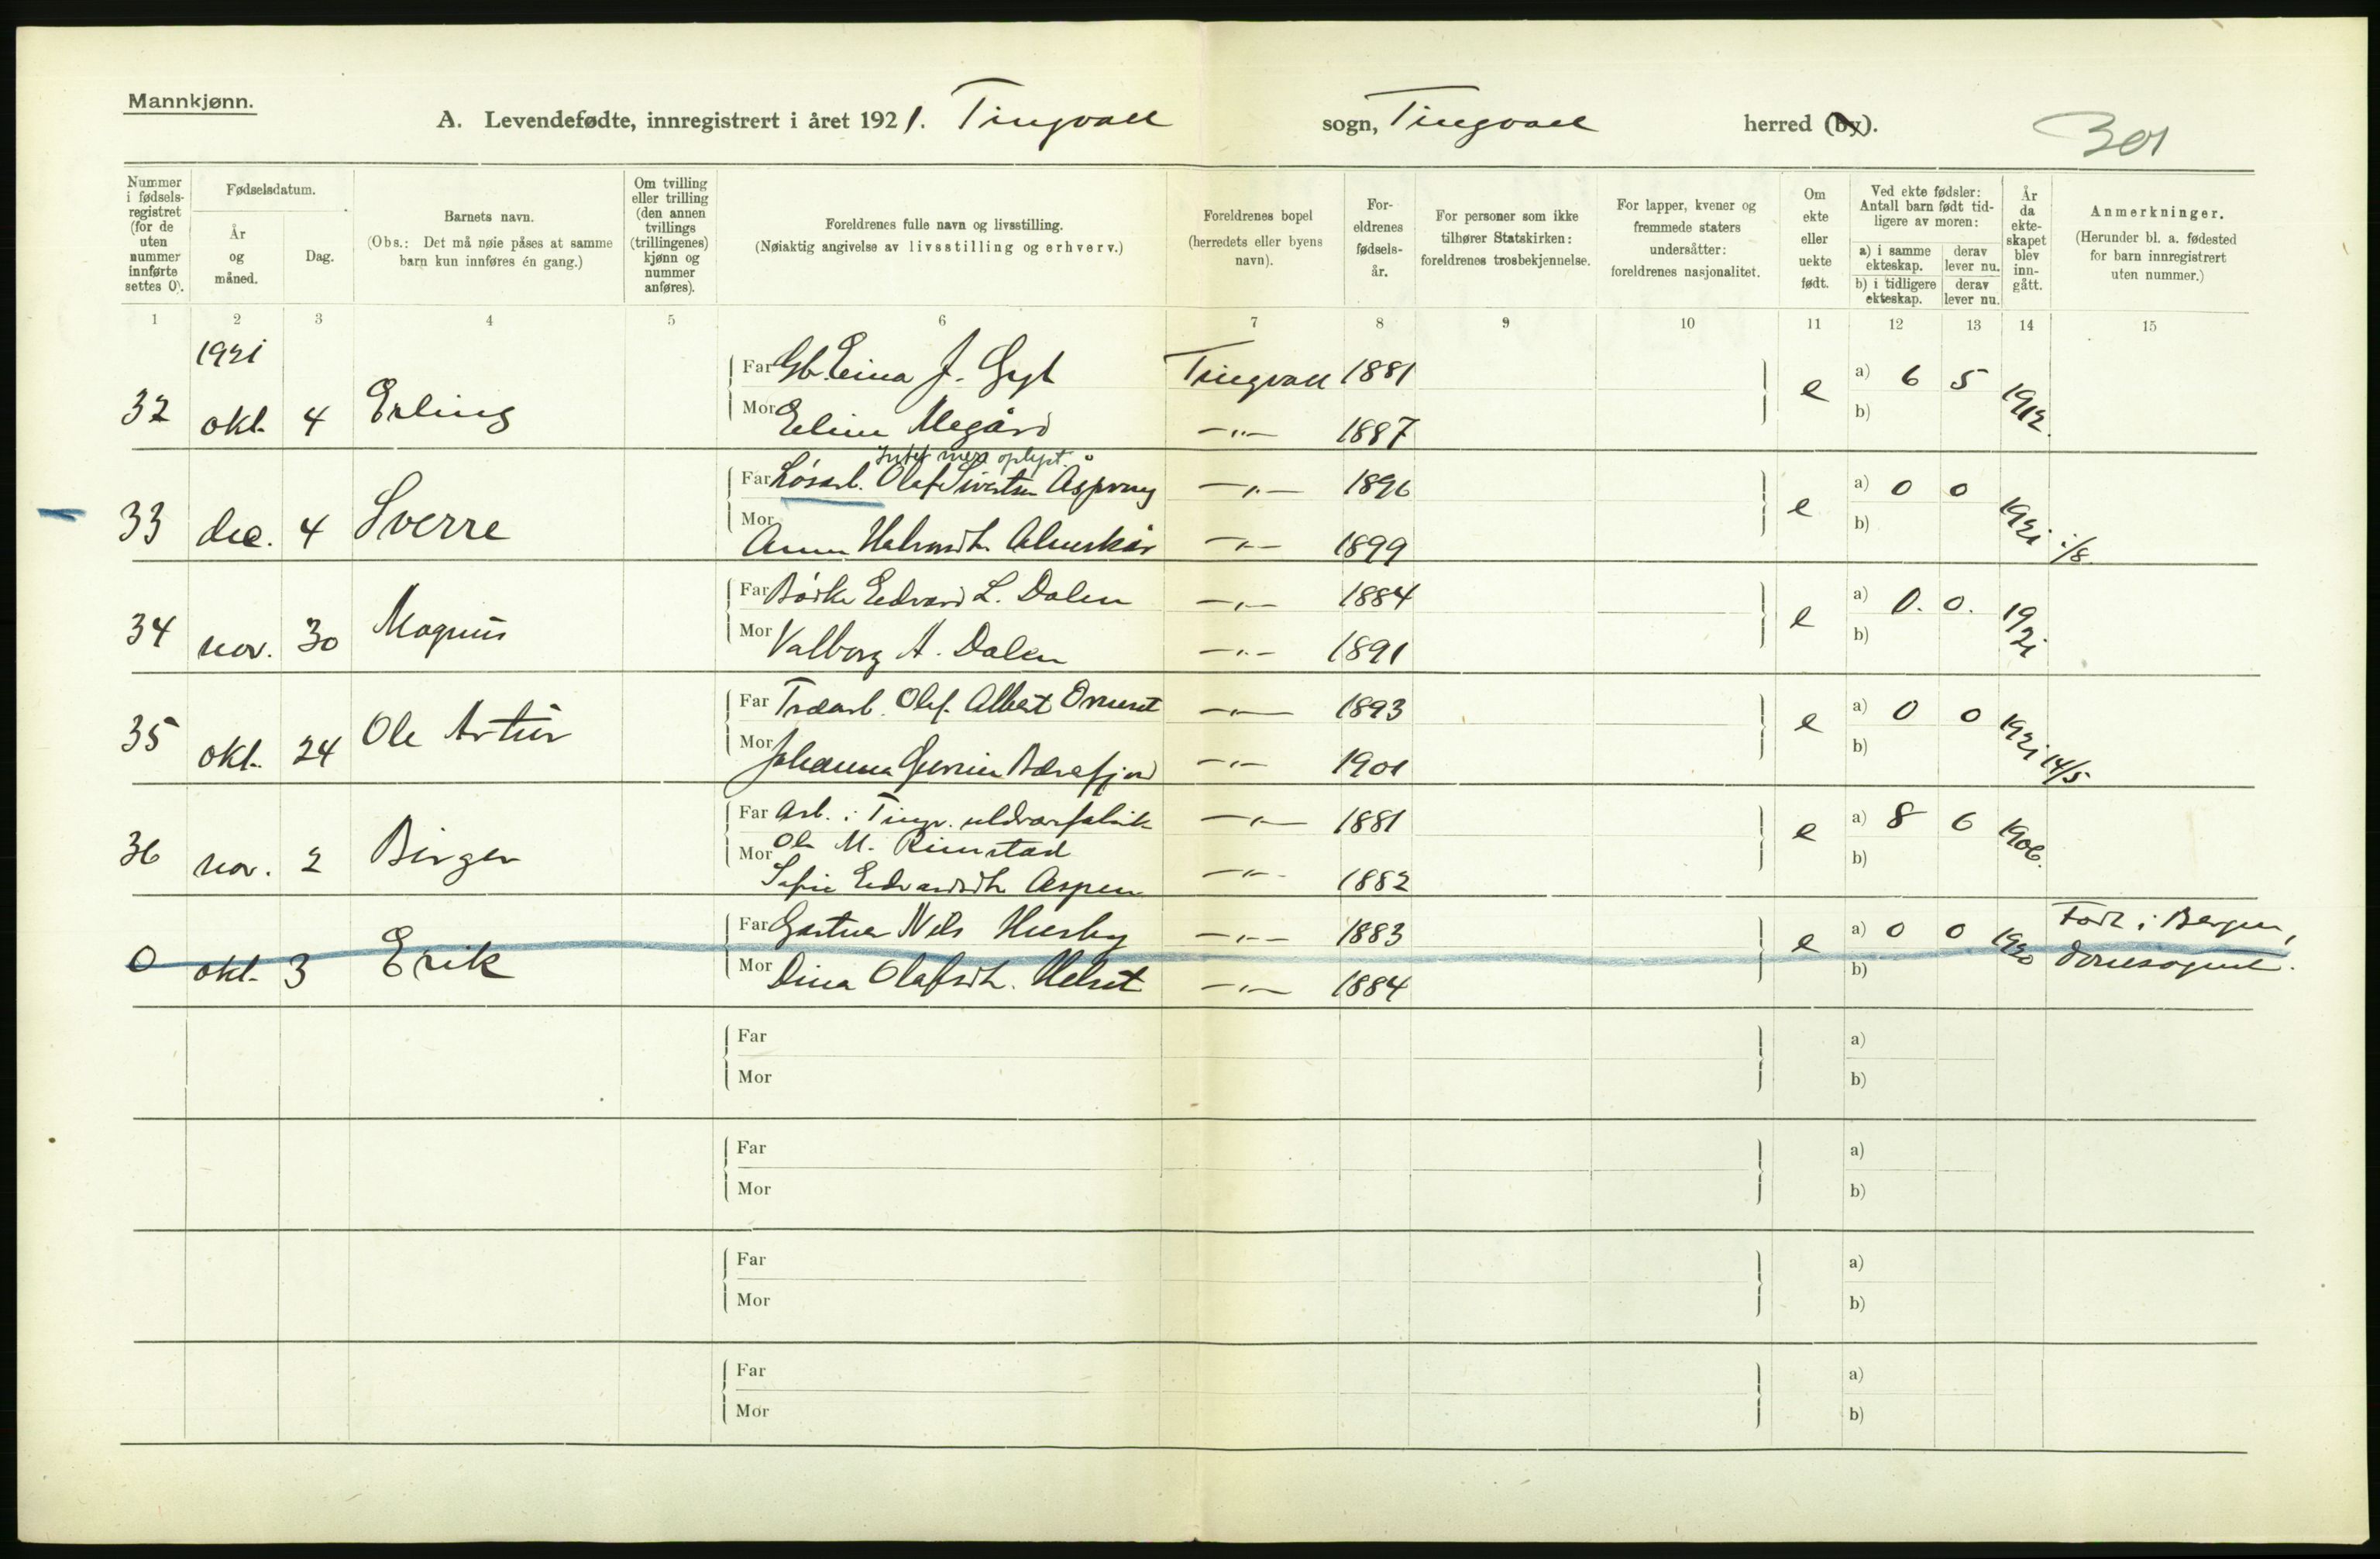 Mannkjønn.
A. Levendefødte, innregistrert i året 1921. Tingvoll sogn, Tingvoll herred (by).
301
Nummer i fødsels-registret (for de uten nummer innførte settes 0).
Fødselsdatum.
År og måned.
Dag.
Barnets navn.
(Obs.: Det må nøie påses at samme barn kun innføres én gang.)
Om tvilling eller trilling (den annen tvillings (trillingenes) kjønn og nummer anføres).
Foreldrenes fulle navn og livsstilling.
(Nøiaktig angivelse av livsstilling og erhverv.)
Foreldrenes bopel (herredets eller byens navn).
For-eldrenes fødsels-år.
For personer som ikke tilhører Statskirken: foreldrenes trosbekjennelse.
For lapper, kvener og fremmede staters undersåtter: foreldrenes nasjonalitet.
Om ekte eller uekte født.
Ved ekte fødsler: Antall barn født tid-ligere av moren:
a) i samme ekteskap.
derav lever nu.
b) i tidligere ekteskap.
derav lever nu.
År da ekte-skapet blev inn-gått.
Anmerkninger.
(Herunder bl. a. fødested for barn innregistrert uten nummer.)
1 2 3 4 5 6 7 8 9 10 11 12 13 14 15
1921
32 okt. 4 Erling
Far Gb. Einar J. Gyl Tingvoll 1881 e a) 6 5 1912.
Mor Eline Megård —"— 1887 b)
Intet mer oplyst.
33 dec. 4 Sverre
Far Løsarb. Olaf Sivertsen —"— 1896 e a) 0 0 1921 1/8.
Mor Anna —"— 1899 b)
34 nov. 30 Magnus
Far Edvard L. Dalen —"— 1884 e a) 0. 0. 1921
Mor Valborg A. Dalen —"— 1891 b)
35 okt. 24 Ole Artur
Far Olaf Albert —"— 1893 e a) 0 0 1921 14/5
Mor Johanna —"— 1901 b)
36 nov. 2 Birger
Far Arb. i Tingv. uldvarefabrik —"— 1881 e a) 8 6 1906.
Ole M. Rimstad
Mor Sofie Edvardsdt. Aspen —"— 1882 b)
0 okt. 3 Erik
Far Gartner Nils Husby —"— 1883 e a) 0 0 1920 Født i Bergen,
Mor Dina Olafsdt. Helset —"— 1884 b) Domsognet.
Far a)
Mor b)
Far a)
Mor b)
Far a)
Mor b)
Far a)
Mor b)